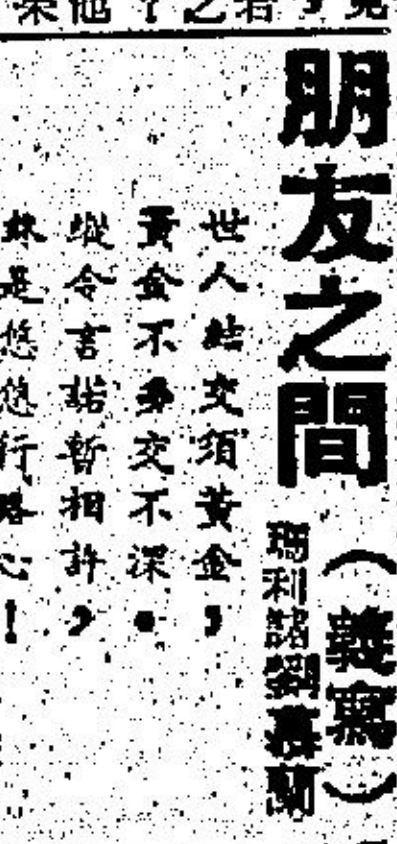 朋友之間（義寫）
瑪利諾劉慕蘭
世人結交須黃金，
黃金不多交不深。
縱令言諾暫相許，
終是悠悠行路心！